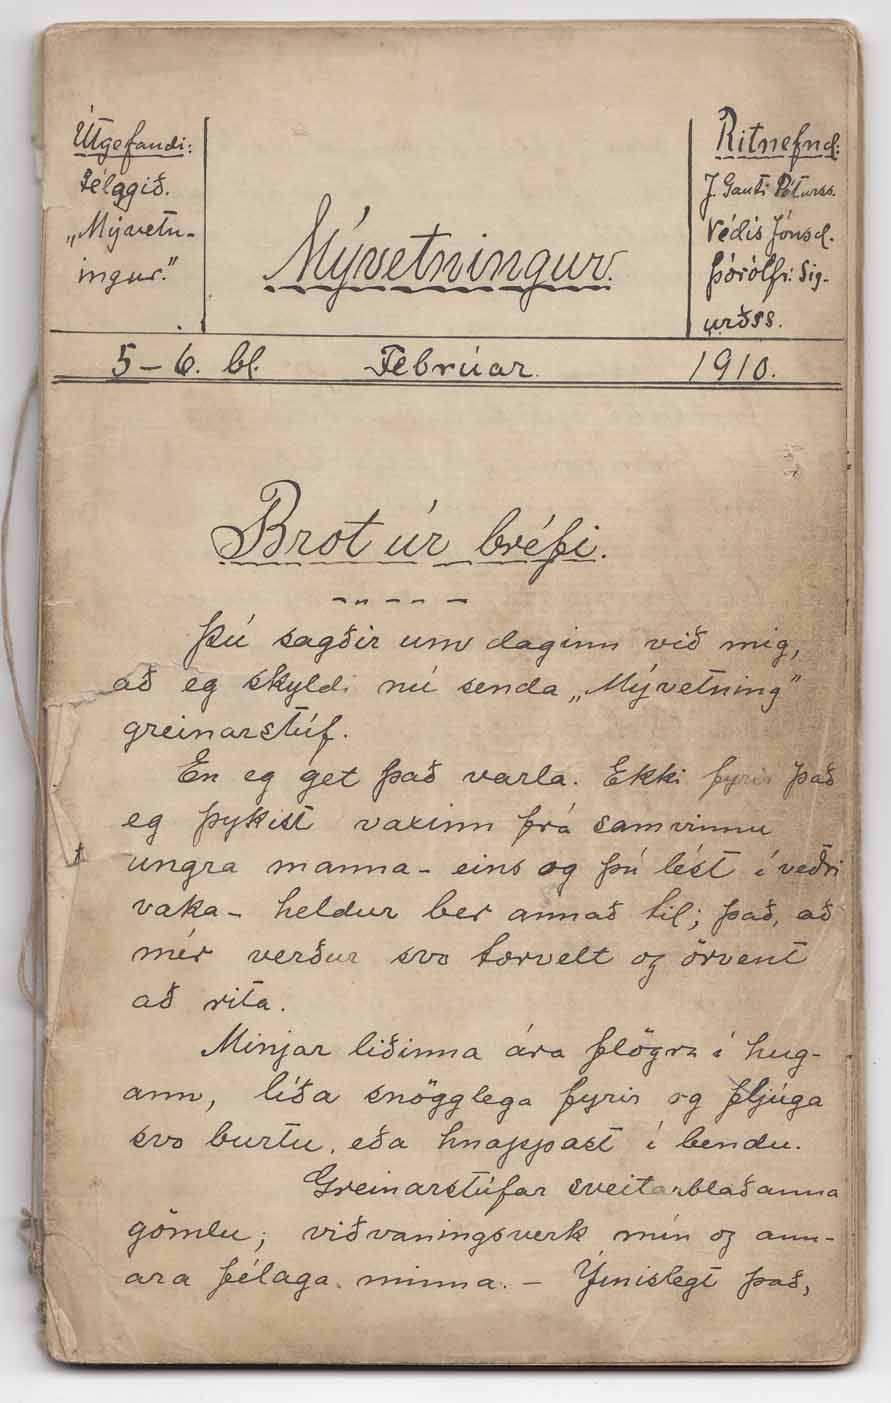 Útgefandi:
Félagið.
„Mývetn-
ingur."
Mývetningur.
Ritnefnd:
J. Gauti Péturss.
Védís Jónsd.
Þórólfr: Sig-
urðss.
5-6. bl. Febrúar. 1910.
Brot úr bréfi.
Þú sagðir um daginn við mig,
að eg skyldi nú senda „Mývetning"
greinarstúf.
En eg get það varla. Ekki fyrir það
eg þykist vaxinn frá samvinnu
ungra manna - eins og þú lést í veðri
vaka - heldur ber annað til; það, að
mér verður svo torvelt og örvent
að rita.
Minjar liðinna ára flögra í hug-
ann, líða snögglega fyrir og fljúga
svo burtu, eða hnappast í bendu.
Greinarstúfar sveitarblaðanna
gömlu; viðvaningsverk mín og ann-
ara félaga minna. - Ýmislegt það,